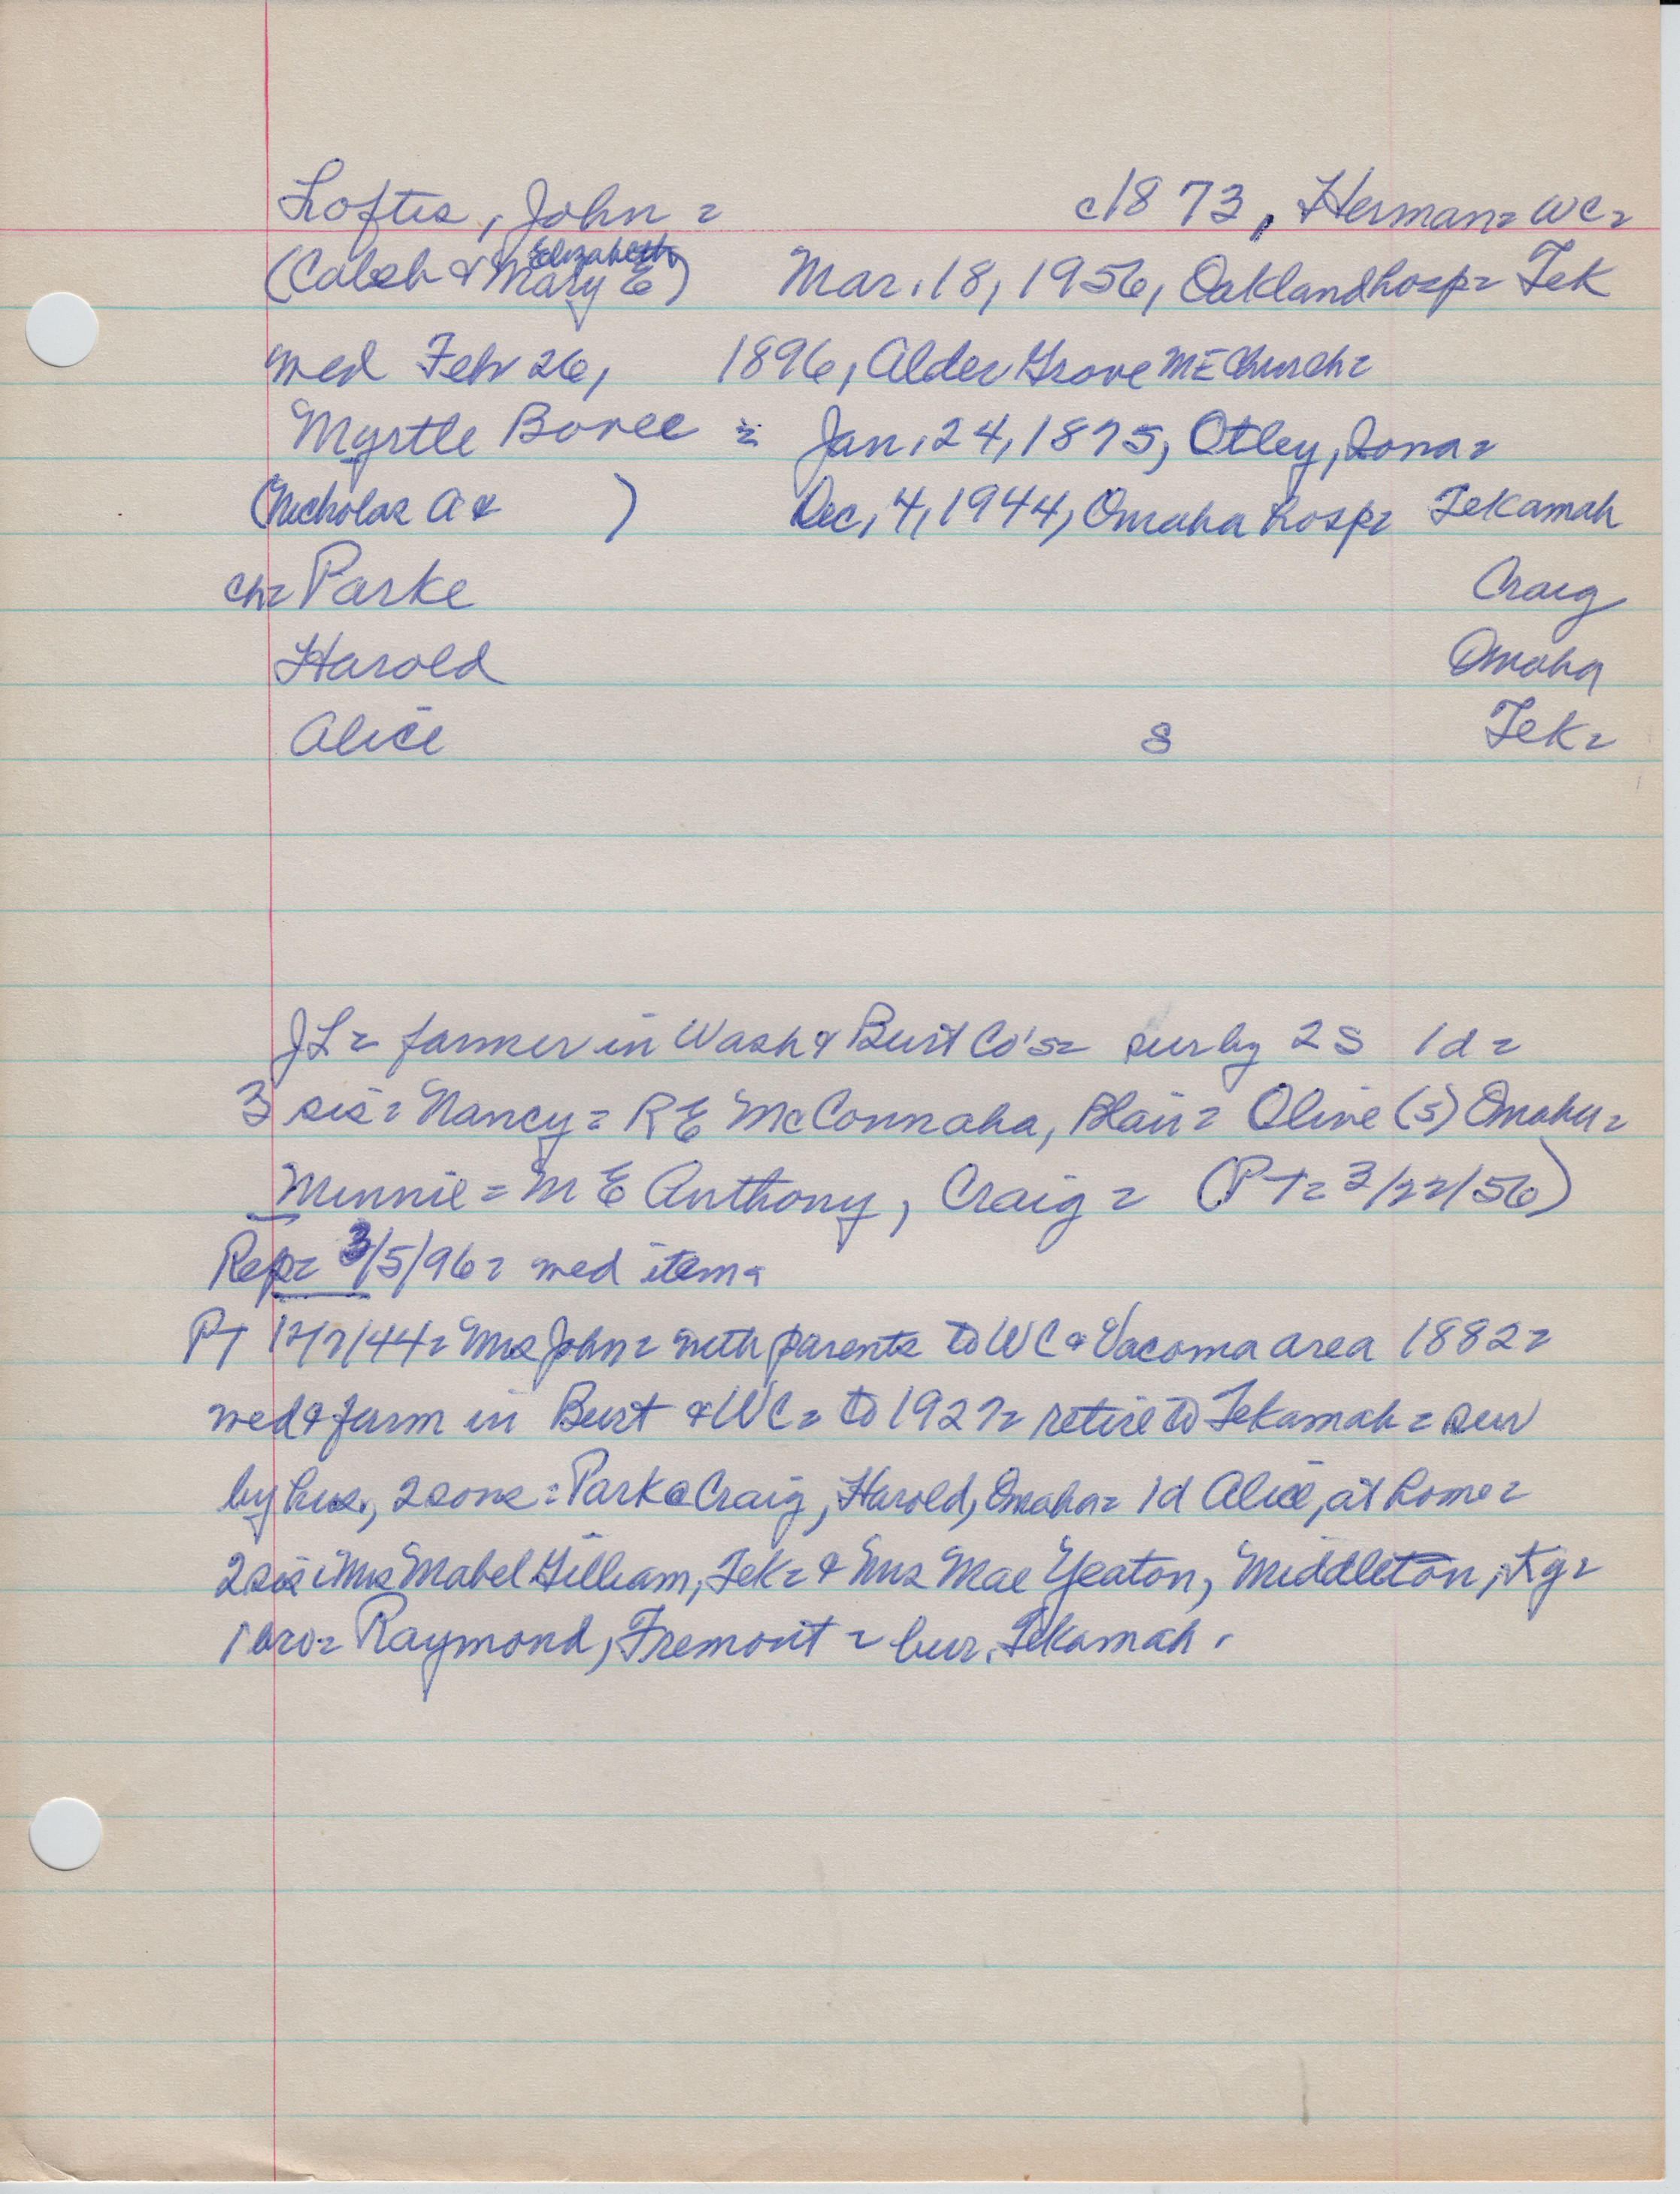 Loftis, John = c1873, Herman= WC=
(Caleb & Mary E) Elizabeth Mar. 18, 1956, Oakland hosp= Tek
wed Feb 26, 1896, Alder Grove ME Church=
Myrtle Bovee = Jan. 24, 1875, Otley, Iowa=
(Nicholas A & ) Dec. 4, 1944, Omaha hosp= Tekamah
ch= Parke Craig
Harold Omaha
Alice S Tek=
JL= farmer in Wash & Burt Co's= sur by 2 S 1 d=
3 sis= Nancy= R E McConnaha, Blair= Olive (s) Omaha=
Minnie= M E Anthony, Craig= (PT= 3/22/56)
Rep= 3/5/96= wed item=
PT 12/7/44= Mrs John= with parents to WC & Vacoma area 1882=
wed & farm in Burt & WC= to 1927= retire to Tekamah= sur
by hus., 2 sons= Parke Craig, Harold, Omaha= 1 d Alice, at home=
2 sis: Mrs Mabel Gilliam, Tek= & Mrs Mae Yeaton, Middleton, Kg=
1 bro= Raymond, Fremont= bur. Tekamah.